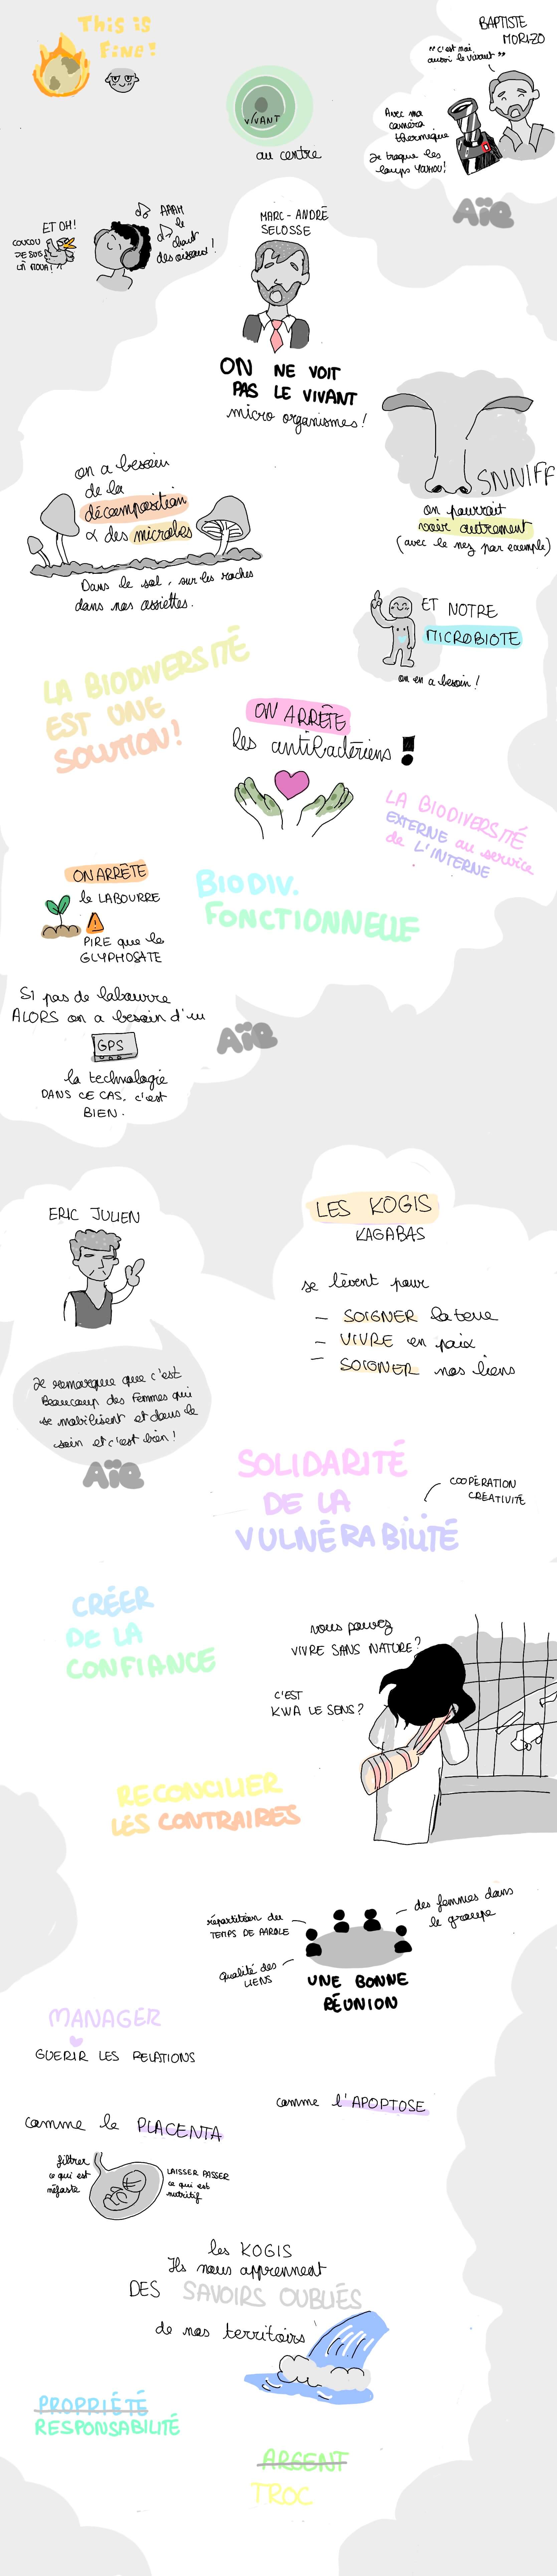 This is
Fine!
BAPTISTE
MORIZO
"c'est moi
aussi le vivant"
Avec ma
caméra
thermique
Je traque les
loups YAHOU!
AïE
VIVANT
au centre
ET OH!
COUCOU
JE SUIS
LÀ MOUA!
AAAH
le
chant
des oiseaux!
MARC-ANDRÉ
SELOSSE
ON NE VOIT
PAS LE VIVANT
micro organismes!
SNNIFF
on pourrait
voir autrement
(avec le nez par exemple)
on a besoin
de la
décomposition
& des microbes
Dans le sol, sur les roches
dans nos assiettes.
ET NOTRE
MICROBIOTE
on en a besoin!
LA BIODIVERSITÉ
EST UNE
SOLUTION!
ON ARRÊTE
les antibactériens!
LA BIODIVERSITÉ
EXTERNE au service
de L'INTERNE
ON ARRÊTE
le LABOURRE
PIRE que le
GLYPHOSATE
BIODIV.
FONCTIONNELLE
SI pas de labourre
ALORS on a besoin d'un
GPS
la technologie
DANS CE CAS, c'est
BIEN.
AïE
ERIC JULIEN
LES KOGIS
KAGABAS
se lèvent pour
- SOIGNER la terre
- VIVRE en paix
- SOIGNER nos liens
Je remarque que c'est
Beaucoup des femmes qui
se mobilisent et dans le
soin et c'est bien!
AïE
SOLIDARITÉ
DE LA
VULNÉRABILITÉ
COOPÉRATION
CRÉATIVITÉ
CRÉER
DE LA
CONFIANCE
vous pouvez
VIVRE SANS NATURE?
C'EST
KWA LE SENS?
RECONCILIER
LES CONTRAIRES
répartition du
TEMPS DE PAROLE
des femmes dans
le groupe
Qualité des
LIENS
UNE BONNE
RÉUNION
MANAGER
GUERIR LES RELATIONS
comme l'APOPTOSE
comme le PLACENTA
filtrer
ce qui est
néfaste
LAISSER PASSER
ce qui est
nutritif
les KOGIS
Ils nous apprennent
DES SAVOIRS OUBLIÉS
de nos territoirs
PROPRIÉTÉ
RESPONSABILITÉ
ARGENT
TROC